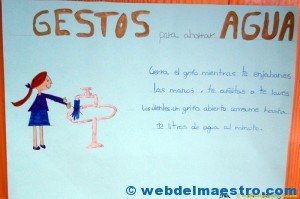 GESTOS para ahorrar AGUA
Cierra el grifo mientras te enjabonas
las manos, te afeitas o te lavas
los dientes, un grifo abierto consume hasta
12 litros de agua al minuto.
© webdelmaestro.com